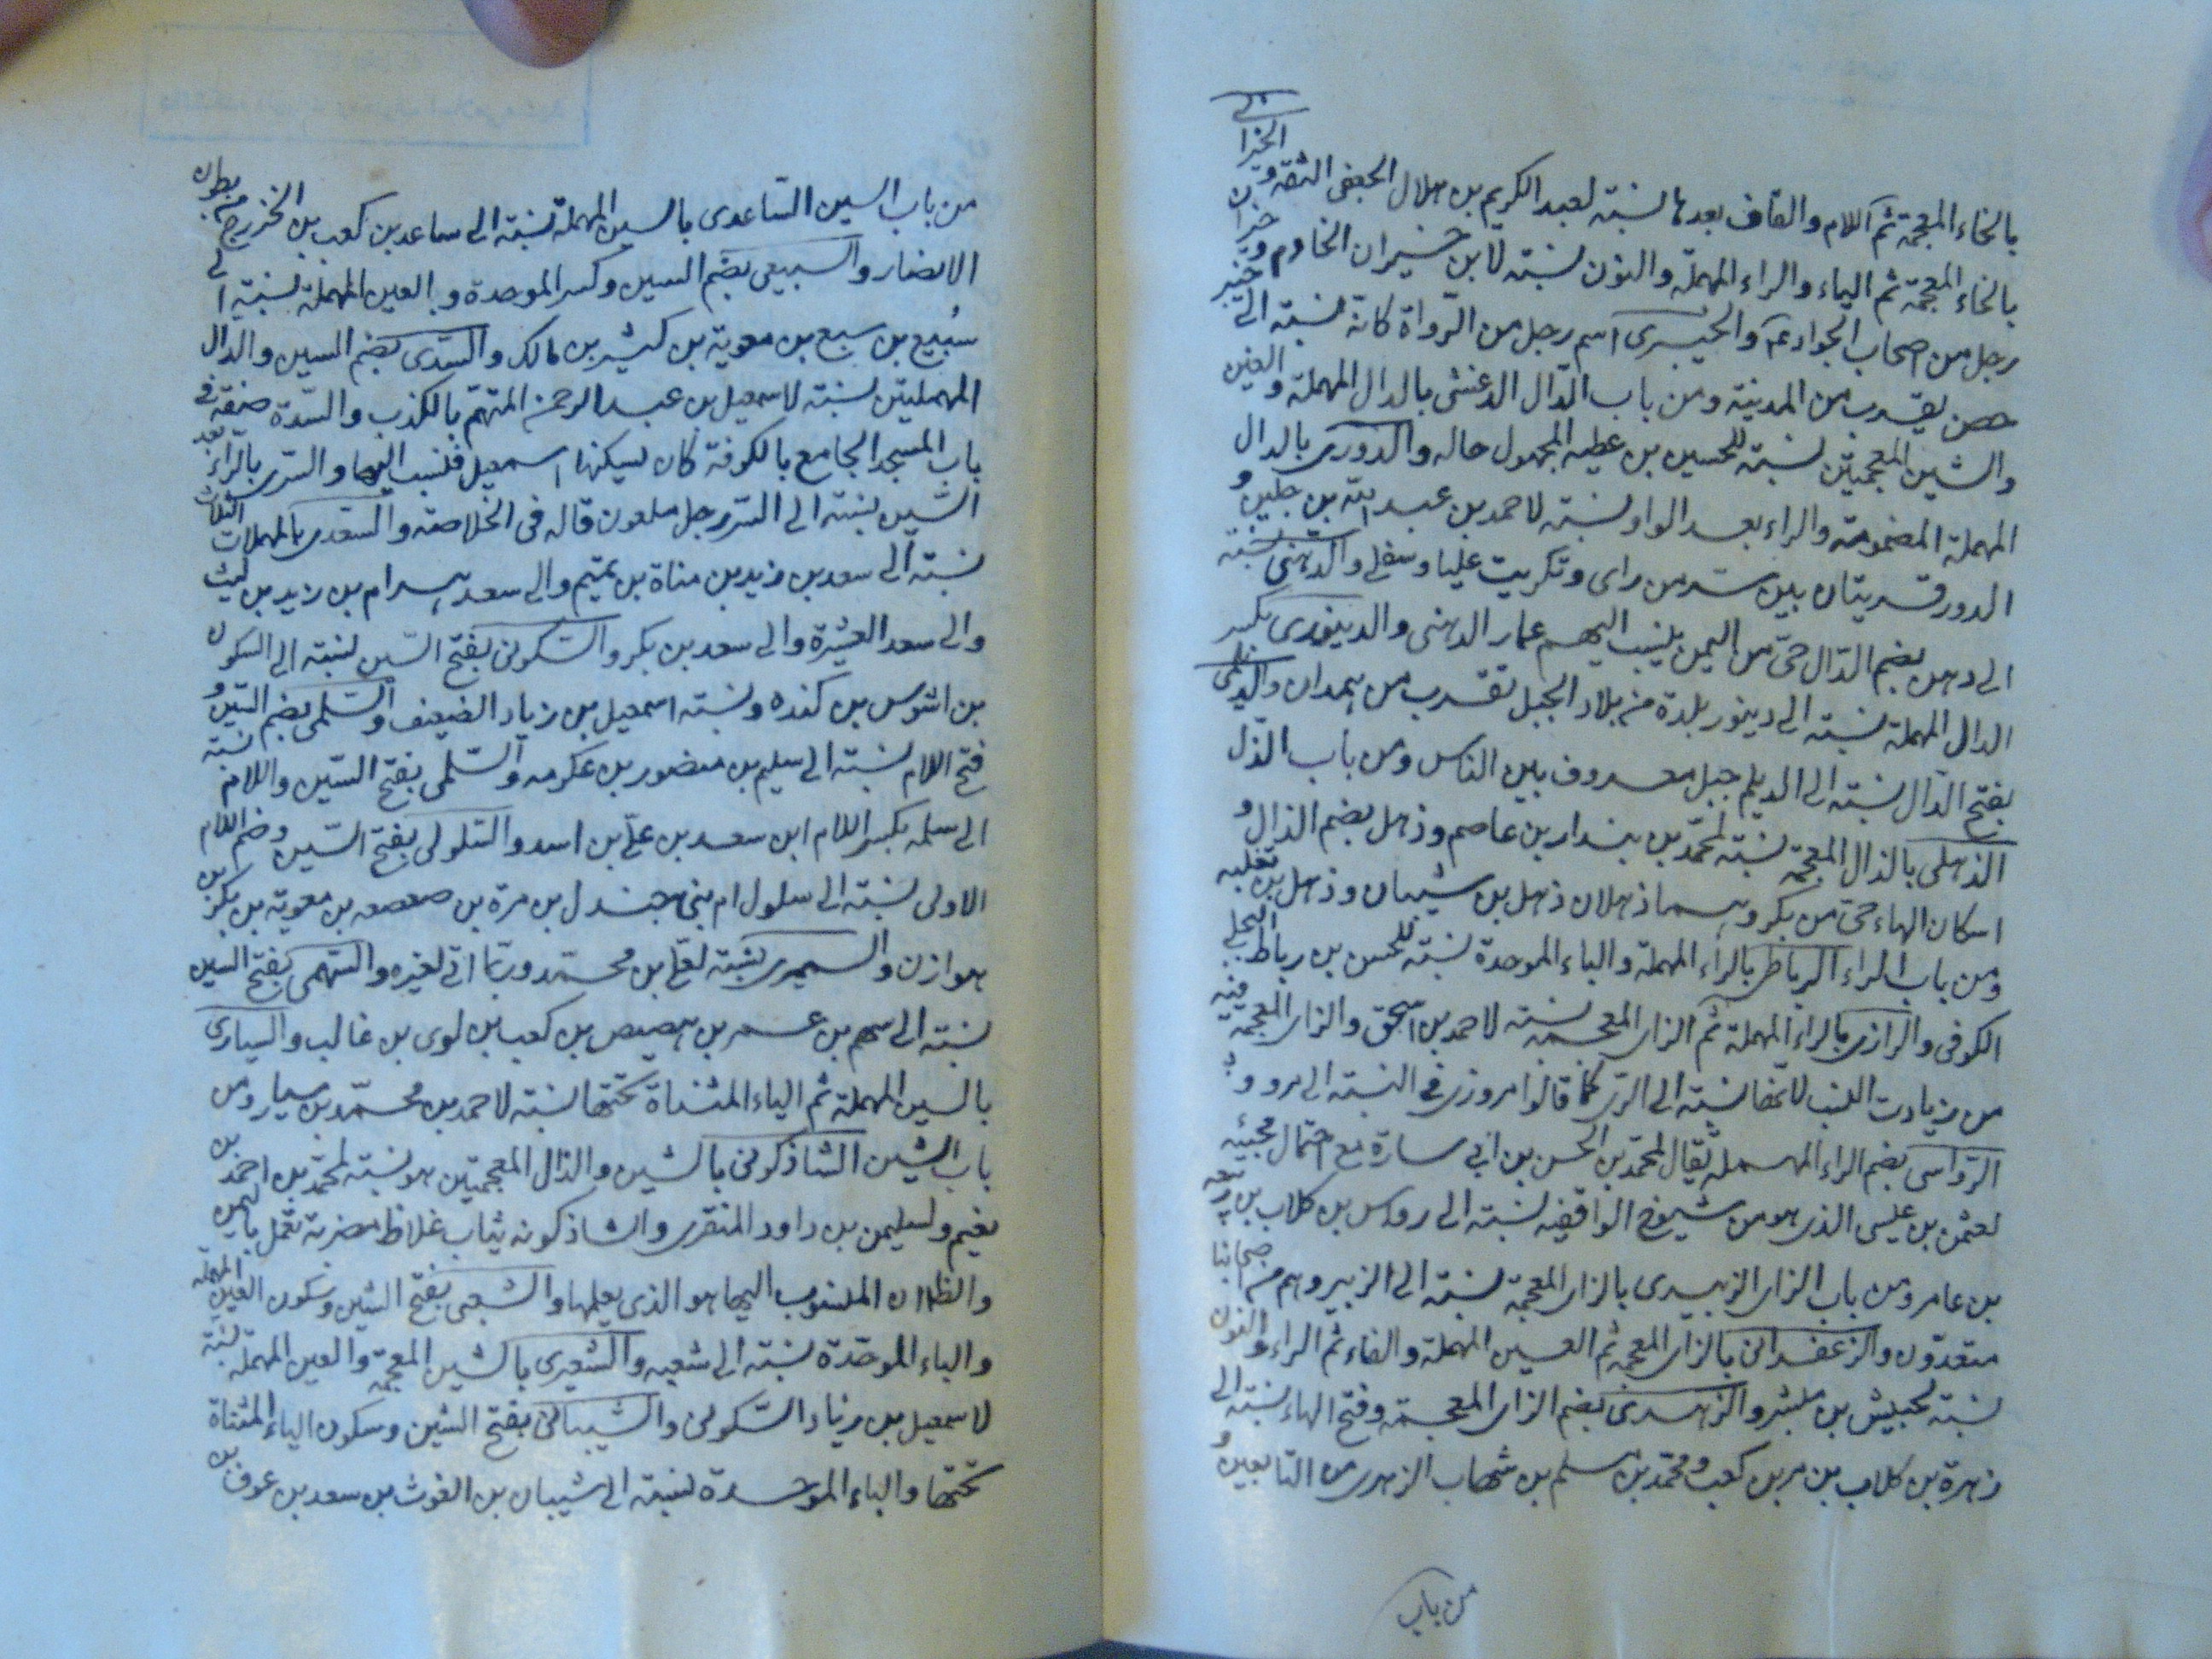 بالخاء المعجمة ثم اللام والقاف بعدها نسبته لعبد الكريم بن هلال الجعفي الثقة و الخزا
بالخاء المعجمة ثم الياء والراء المهملة والنون نسبته لابن خيران الخادم و
رجل من اصحاب الجواد عم والخيبرى اسم رجل من الرواة كانه نسبته الى خيبر
حصن بقرب من المدينة ومن باب الدال الدغشى بالدال المهملة و الغين
والشين المعجمتين نسبته للحسين بن عطيه المجهول حاله والدورى بالدال
المهملة المضمومة والراء بعد الواو نسبته لاحمد بن عبد الله بن جلين و
الدور قريتان بين سر من راى وتكريت عليا وسفلى والدهنى نسبته
الى دهن بضم الدال حى من اليمن ينسب اليهم عمار الدهنى والدينورى بكسر
الدال المهملة نسبته الى دينور بلدة من بلاد الجبل تقرب من همدان والديلمى
بفتح الدال نسبته الى الديلم جبل معروف بين الناس ومن باب الذال
الذهلى بالذال المعجمة نسبته لمحمد بن بندار بن عاصم وذهل بضم الذال و
اسكان الهاء حى من بكر وهما ذهلان ذهل بن شيبان وذهل بن ثعلبه
ومن باب الراء الرباطى بالراء المهملة والباء الموحدة نسبته للحسن بن رباط البجلى
الكوفى والرازى بالراء المهملة ثم الزاى المعجمة نسبته لاحمد بن اسحق والزاى المعجمة فيه
من زيادت النسب لانها نسبته الى الرى كما قالوا مروزى فى النسبته الى مرو و
الرواسى بضم الراء المهملة يقال لمحمد بن الحسن بن ابى سارة مع احتمال مجيئه
لعثمن بن عيسى الذى هو من شيوخ الواقفيه نسبته الى رواس بن كلاب بن
بن عامر ومن باب الزاى الزبيرى بالزاى المعجمة نسبته الى الزبير وهم من اصحابنا
متعددون والزعفرانى بالزاى المعجمة ثم العين المهملة والفاء ثم الراء والنون
نسبته لحبيش بن مبشر والزهرى بضم الزاى المعجمة وفتح الهاء نسبته الى
زهرة بن كلاب بن مر بن كعب ومحمد بن مسلم بن شهاب الزهرى من التابعين و
من باب
من باب السين الساعدى بالسين المهملة نسبته الى ساعد بن كعب بن الخزرج من بطون
الانصار والسبيعى بضم السين وكسر الموحدة و العين المهملة نسبته الى
سبيع بن سبيع بن معوية بن كثير بن مالك والسدى بضم السين والدال
المهملتين نسبته لاسمعيل بن عبد الرحمن المتهم بالكذب والسدة صفيقه فى
باب المسجد الجامع بالكوفة كان يسكنها اسمعيل فنسب اليها والسرى بالراء بعد
السين نسبته الى السر رجل ملعون قاله فى الخلاصة والسعدى بالمهملات الثلاث
نسبته الى سعد بن زيد بن مناة بن تميم والى سعد هرام بن زيد بن ليث
والى سعد العشيرة والى سعد بن بكر والسكونى بفتح السين نسبته الى السكون
بن اشوس بن كنده ونسبته اسمعيل بن زياد الضعيف والسلمى بضم السين و
فتح اللام نسبته الى سليم بن منصور بن عكرمه والسلمى بفتح السين واللام نسبته
الى سلمه بكسر اللام ابن سعد بن على بن اسد والسلولى بفتح السين وضم اللام
الاولى نسبته الى سلول ام بنى جندل بن مرة بن صعصعه بن معوية بن بكر بن
هوازن والسميرى نسبته لعلى بن محمد وربما اتى لغيره والسهمى بفتح السين
نسبته الى سهم بن عمر بن هصيص بن كعب بن لوى بن غالب والسيارى
بالسين المهملة ثم الياء المثناة تحتها نسبته لاحمد بن محمد بن سيار ومن
باب الشين الشاذكونى بالشين والذال المعجمتين هو نسبته لمحمد بن احمد بن
نعيم ولسليمن بن داود المنقرى والشاذكونه ثياب غلاظ مضربة تعمل باليمن
والظاهر ان المنسوب اليها هو الذى يعملها والشعبى بفتح الشين وسكون العين المهملة
والباء الموحدة نسبته الى شعبه والشعيرى بالشين المعجمة والعين المهملة نسبته
لاسمعيل بن زياد السكونى والشيبانى بفتح الشين وسكون الياء المثناة
تحتها والباء الموحدة نسبته الى شيبان بن الغوث بن سعد بن عوف بن